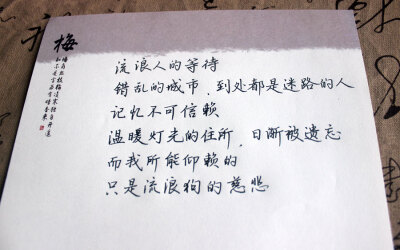 梅
流浪人的等待
错乱的城市，到处都是迷路的人
记忆不可信赖
温暖灯光的住所，日渐被遗忘
而我所能仰赖的
只是流浪狗的慈悲